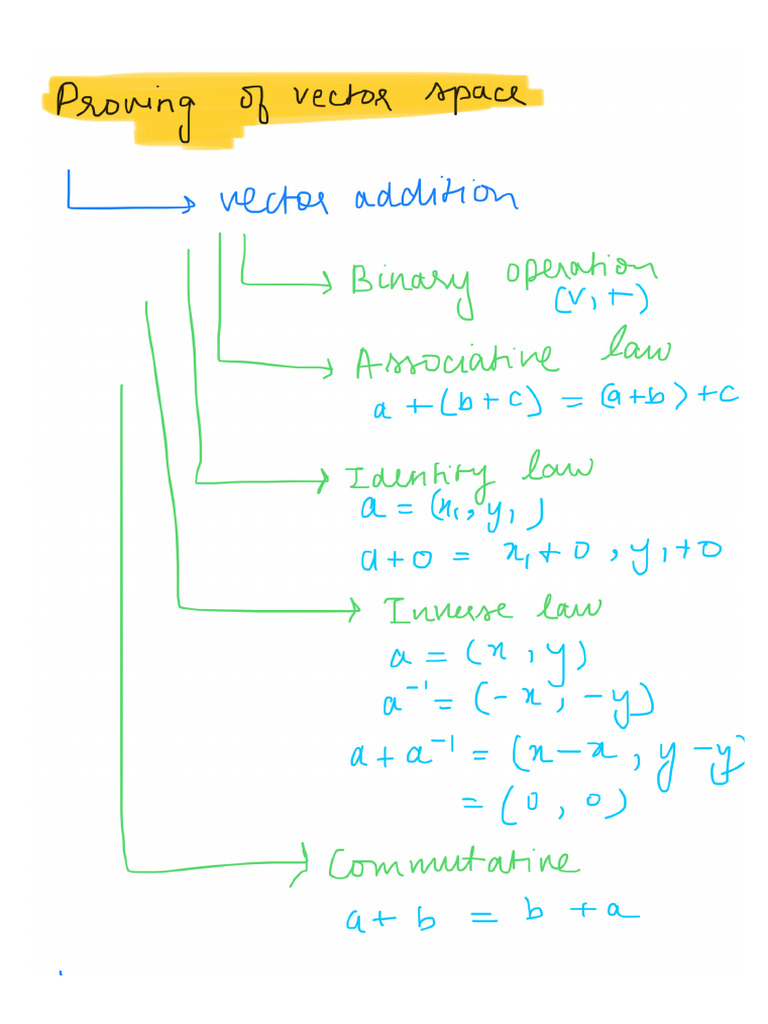 Proving of vector space
vector addition
Binary operation
(V, +)
Associative law
a + (b + c) = (a + b) + c
Identity law
a = (x₁, y₁)
a + 0 = x₁ + 0, y₁ + 0
Inverse law
a = (x, y)
a⁻¹ = (-x, -y)
a + a⁻¹ = (x - x, y - y)
= (0, 0)
Commutative
a + b = b + a